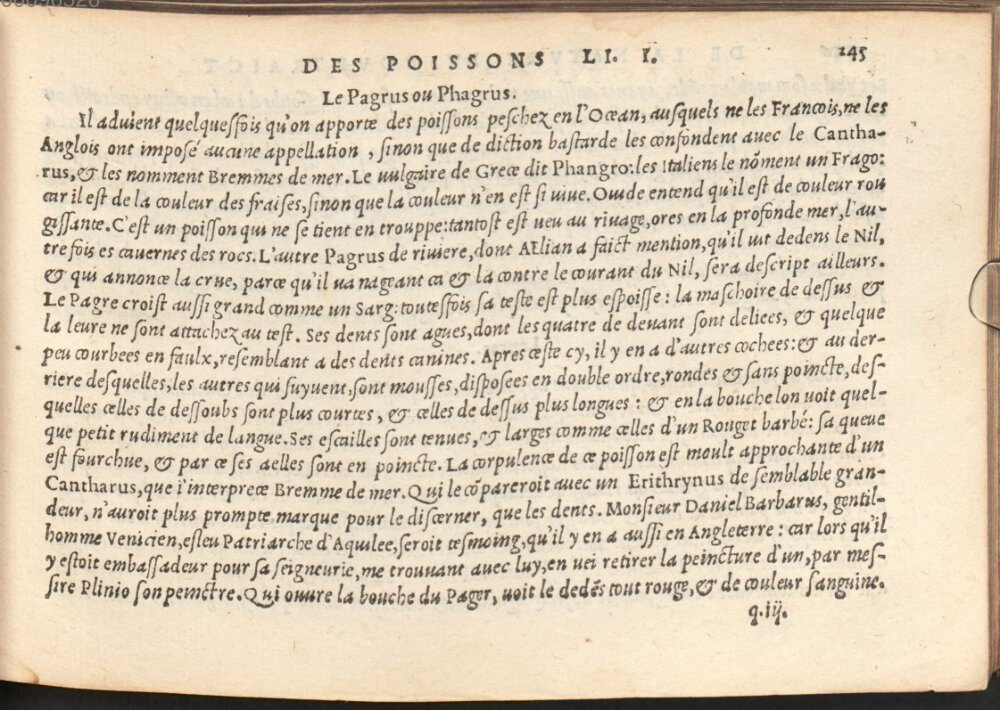 DES POISSONS LI. I. 145
Le Pagrus ou Phagrus.
Il aduient quelquesfois qu'on apporte des poissons peschez en l'Ocean, ausquels ne les Francois, ne les
Anglois ont imposé aucune appellation, sinon que de diction bastarde les confondent avec le Cantha-
rus, & les nomment Bremmes de mer. Le vulgaire de Grece dit Phangro: les Italiens le nōment un Frago:
car il est de la couleur des fraises, sinon que la couleur n'en est si viue. Ouide entend qu'il est de couleur rou
gissante. C'est un poisson qui ne se tient en trouppe: tantost est veu au riuage, ores en la profonde mer, l'au-
tre fois es cauernes des rocs. L'autre Pagrus de riuiere, dont AElian a faict mention, qu'il vit dedens le Nil,
& qui annonce la crue, parce qu'il va nageant ca & la contre le courant du Nil, sera descript ailleurs.
Le Pagre croist aussi grand comme un Sarg: toutesfois sa teste est plus espoisse: la maschoire de dessus &
la leure ne sont attachez au test. Ses dents sont agues, dont les quatre de deuant sont deliees, & quelque
peu courbees en faulx, resemblant a des dents canines. Apres ceste cy, il y en a d'autres cochees: & au der-
riere desquelles, les autres qui suyuent, sont mousses, disposees en double ordre, rondes & sans poincte, des-
quelles celles de dessoubs sont plus courtes, & celles de dessus plus longues: & en la bouche lon voit quel-
que petit rudiment de langue. Ses escailles sont tenues, & larges comme celles d'un Rouget barbé: sa queue
est fourchue, & par ce ses aelles sont en poincte. La corpulence de ce poisson est moult approchante d'un
Cantharus, que i'interprete Bremme de mer. Qui le cōpareroit avec un Erithrynus de semblable gran-
deur, n'auroit plus prompte marque pour le discerner, que les dents. Monsieur Daniel Barbarus, gentil-
homme Venicien, esleu Patriarche d'Aquilee, seroit tesmoing, qu'il y en a aussi en Angleterre: car lors qu'il
y estoit embassadeur pour sa seigneurie, me trouuant avec luy, en vei retirer la peincture d'un, par mes-
sire Plinio son peinctre. Qui ouure la bouche du Pager, voit le dedēs tout rouge, & de couleur sanguine.
q.iij.